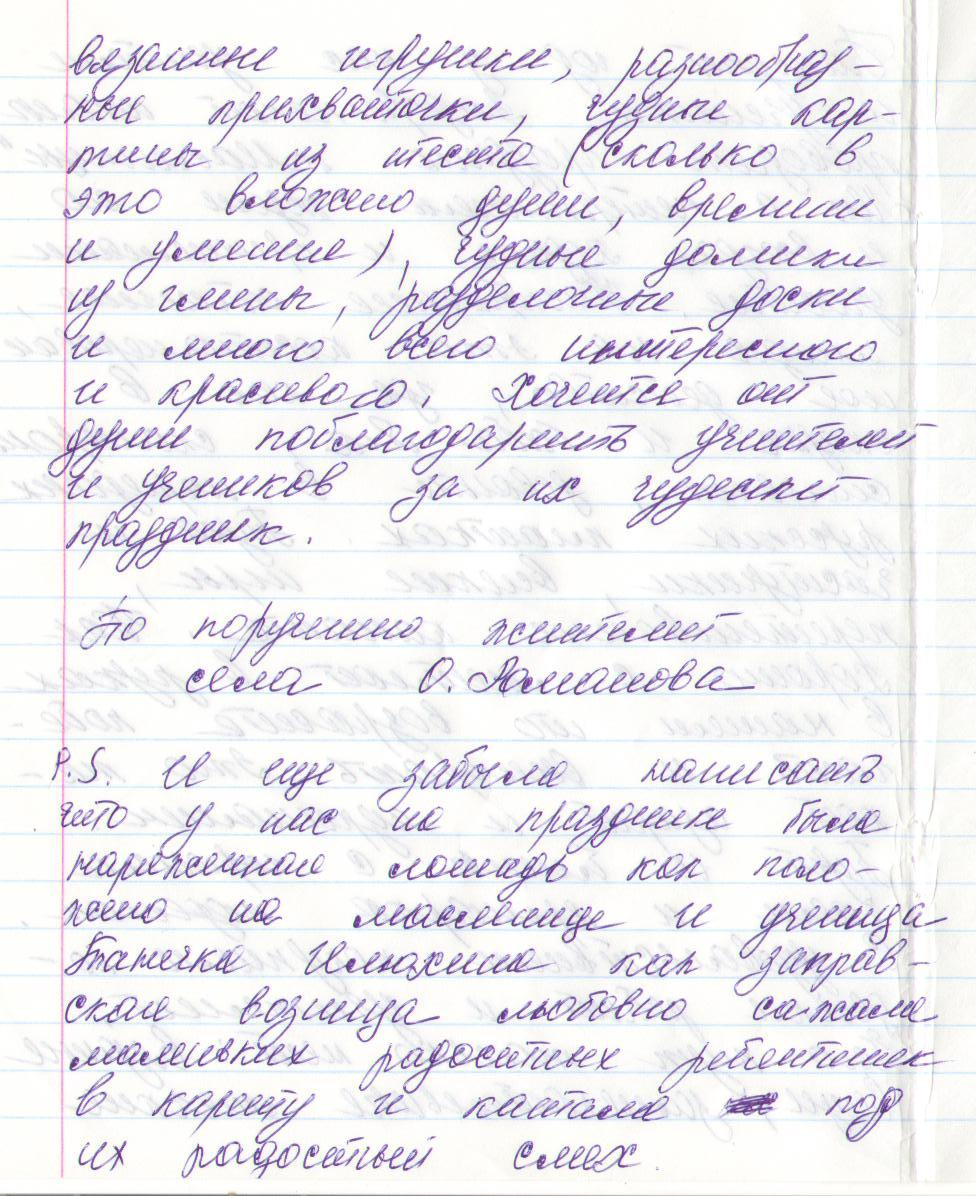 вязанные игрушки, разнообраз-
ные прихваточки, чудные кар-
тины из теста (сколько в
это вложено души, времени
и умение), чудные домики
из глины, разделочные доски
и много всего интересного
и красивого. Хочется от
души поблагодарить учителей
и учеников за их чудесный
праздник.
По поручению жителей
села О. Романова
P.S. И еще забыла написать
что у нас на празднике была
наряженная лошадь как поло-
жено на масленице и ученица
Танечка Илюхина как заправ-
ская возница любовно сажала
маленьких радостных ребятишек
в карету и катала под
их радостный смех.